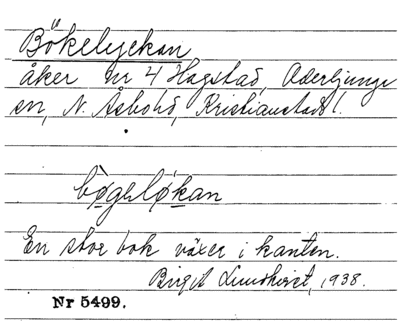 Bökelyckan
åker nr 4 Hagstad, Oderljunga
sn, N. Åsbohd, Kristianstads l.
bøgeløkan
En stor bok växer i kanten.
Birgit Lundkvist, 1938.
Nr 5499.